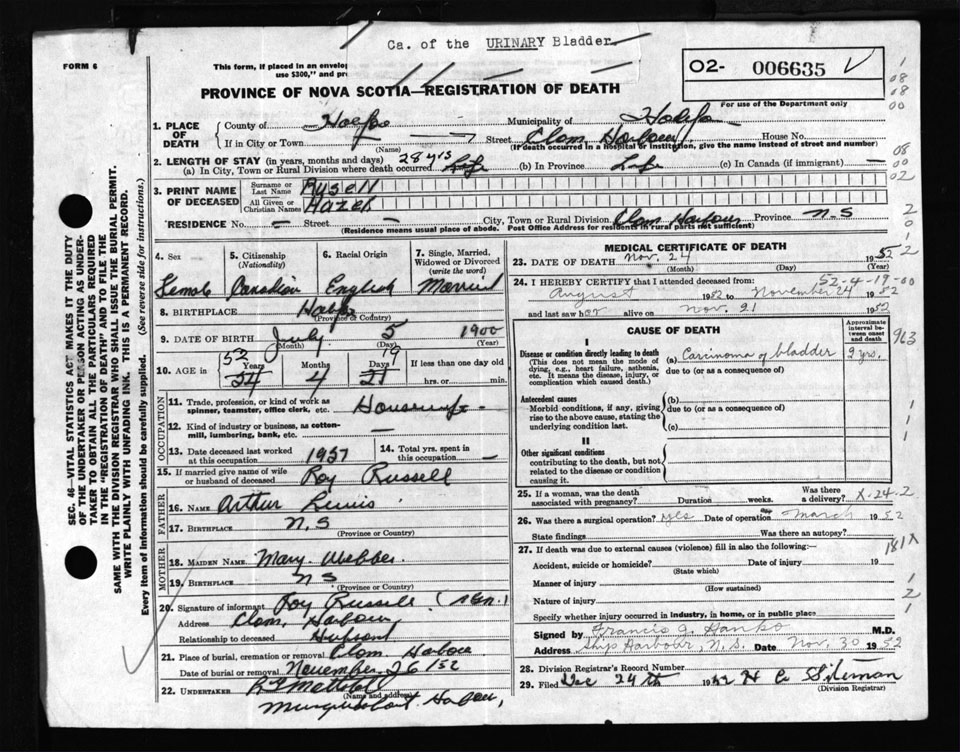 Ca. of the URINARY Bladder
FORM 6
This form, if placed in an envelop
use $300," and pr
PROVINCE OF NOVA SCOTIA—REGISTRATION OF DEATH
O2- 006635 V
For use of the Department only
1. PLACE OF DEATH
County of Halifax Municipality of Halifax
If in City or Town — (Name) Street Clam Harbour House No.
(If death occurred in a hospital or institution, give the name instead of street and number)
2. LENGTH OF STAY (in years, months and days) 28 yrs
(a) In City, Town or Rural Division where death occurred Life (b) In Province Life (c) In Canada (if immigrant) —
3. PRINT NAME OF DECEASED
Surname or Last Name Russell
All Given or Christian Names Hazel
RESIDENCE No. — Street — City, Town or Rural Division Clam Harbour Province N.S
(Residence means usual place of abode. Post Office Address for residents in rural parts not sufficient)
4. Sex Female
5. Citizenship (Nationality) Canadian
6. Racial Origin English
7. Single, Married, Widowed or Divorced (write the word) Married
8. BIRTHPLACE Halifax
(Province or Country)
9. DATE OF BIRTH July 5 1900
(Month) (Day) (Year)
10. AGE in 52 Years 4 Months 19 Days If less than one day old
hrs. or min.
OCCUPATION
11. Trade, profession, or kind of work as spinner, teamster, office clerk, etc. Housewife
12. Kind of industry or business, as cotton-mill, lumbering, bank, etc.
13. Date deceased last worked at this occupation 1951
14. Total yrs. spent in this occupation —
15. If married give name of wife or husband of deceased Roy Russell
FATHER
16. NAME Arthur
17. BIRTHPLACE N.S
(Province or Country)
MOTHER
18. MAIDEN NAME Mary Webber
19. BIRTHPLACE N S
(Province or Country)
20. Signature of informant Roy Russell
Address Clam Harbour
Relationship to deceased Husband
21. Place of burial, cremation or removal Clam Harbour
Date of burial or removal November 26/52
22. UNDERTAKER
(Name and address)
Musquodoboit Harbour,
MEDICAL CERTIFICATE OF DEATH
23. DATE OF DEATH Nov. 24 1952
(Month) (Day) (Year)
24. I HEREBY CERTIFY that I attended deceased from: 52-4-18-00
August 1952 to November 24 1952
and last saw her alive on Nov. 21 1952
CAUSE OF DEATH
Approximate interval between onset and death
I
Disease or condition directly leading to death (a) Carcinoma of bladder 2 yrs.
(This does not mean the mode of dying, e.g., heart failure, asthenia, etc. It means the disease, injury, or complication which caused death.)
due to (or as a consequence of)
Antecedent causes
Morbid conditions, if any, giving rise to the above cause, stating the underlying condition last.
(b)
due to (or as a consequence of)
(c)
II
Other significant conditions
contributing to the death, but not related to the disease or condition causing it.
25. If a woman, was the death associated with pregnancy? Duration weeks. Was there a delivery? X-24-2
26. Was there a surgical operation? yes Date of operation March 1952
State findings Was there an autopsy?
27. If death was due to external causes (violence) fill in also the following:—
Accident, suicide or homicide? Date of injury 19
(State which)
Manner of injury
(How sustained)
Nature of injury
Specify whether injury occurred in industry, in home, or in public place
Signed by Francis G. M.D.
Address Ship Harbour, N.S. Date Nov. 30 1952
28. Division Registrar's Record Number
29. Filed Dec 24th 1952 H C Siteman
(Division Registrar)
SEC. 46—VITAL STATISTICS ACT MAKES IT THE DUTY
OF THE UNDERTAKER OR PERSON ACTING AS UNDER-
TAKER TO OBTAIN ALL THE PARTICULARS REQUIRED
IN THE "REGISTRATION OF DEATH" AND TO FILE THE
SAME WITH THE DIVISION REGISTRAR WHO SHALL ISSUE THE BURIAL PERMIT.
WRITE PLAINLY WITH UNFADING INK. THIS IS A PERMANENT RECORD.
Every item of information should be carefully supplied. (See reverse side for instructions.)